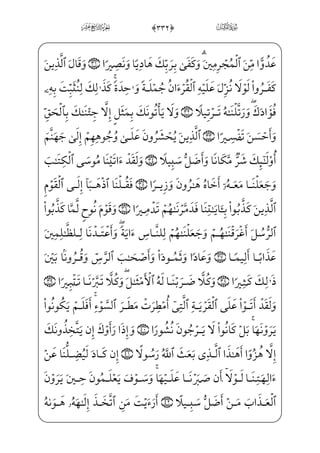 ﴿٣٣٢﴾
عَدُوًّا مِّنَ ٱلْمُجْرِمِينَ ۗ وَكَفَىٰ بِرَبِّكَ هَادِيًا وَنَصِيرًا ۝ وَقَالَ ٱلَّذِينَ
كَفَرُوا۟ لَوْلَا نُزِّلَ عَلَيْهِ ٱلْقُرْءَانُ جُمْلَةً وَٰحِدَةً ۚ كَذَٰلِكَ لِنُثَبِّتَ بِهِۦ
فُؤَادَكَ ۖ وَرَتَّلْنَٰهُ تَرْتِيلًا ۝ وَلَا يَأْتُونَكَ بِمَثَلٍ إِلَّا جِئْنَٰكَ بِٱلْحَقِّ
وَأَحْسَنَ تَفْسِيرًا ۝ ٱلَّذِينَ يُحْشَرُونَ عَلَىٰ وُجُوهِهِمْ إِلَىٰ جَهَنَّمَ
أُو۟لَٰٓئِكَ شَرٌّ مَّكَانًا وَأَضَلُّ سَبِيلًا ۝ وَلَقَدْ ءَاتَيْنَا مُوسَى ٱلْكِتَٰبَ
وَجَعَلْنَا مَعَهُۥٓ أَخَاهُ هَٰرُونَ وَزِيرًا ۝ فَقُلْنَا ٱذْهَبَآ إِلَى ٱلْقَوْمِ
ٱلَّذِينَ كَذَّبُوا۟ بِـَٔايَٰتِنَا فَدَمَّرْنَٰهُمْ تَدْمِيرًا ۝ وَقَوْمَ نُوحٍ لَّمَّا كَذَّبُوا۟
ٱلرُّسُلَ أَغْرَقْنَٰهُمْ وَجَعَلْنَٰهُمْ لِلنَّاسِ ءَايَةً ۖ وَأَعْتَدْنَا لِلظَّٰلِمِينَ
عَذَابًا أَلِيمًا ۝ وَعَادًا وَثَمُودَا۟ وَأَصْحَٰبَ ٱلرَّسِّ وَقُرُونًۢا بَيْنَ
ذَٰلِكَ كَثِيرًا ۝ وَكُلًّا ضَرَبْنَا لَهُ ٱلْأَمْثَٰلَ ۖ وَكُلًّا تَبَّرْنَا تَتْبِيرًا ۝
وَلَقَدْ أَتَوْا۟ عَلَى ٱلْقَرْيَةِ ٱلَّتِىٓ أُمْطِرَتْ مَطَرَ ٱلسَّوْءِ ۚ أَفَلَمْ يَكُونُوا۟
يَرَوْنَهَا ۚ بَلْ كَانُوا۟ لَا يَرْجُونَ نُشُورًا ۝ وَإِذَا رَأَوْكَ إِن يَتَّخِذُونَكَ
إِلَّا هُزُوًا أَهَٰذَا ٱلَّذِى بَعَثَ ٱللَّهُ رَسُولًا ۝ إِن كَادَ لَيُضِلُّنَا عَنْ
ءَالِهَتِنَا لَوْلَآ أَن صَبَرْنَا عَلَيْهَا ۚ وَسَوْفَ يَعْلَمُونَ حِينَ يَرَوْنَ
ٱلْعَذَابَ مَنْ أَضَلُّ سَبِيلًا ۝ أَرَءَيْتَ مَنِ ٱتَّخَذَ إِلَٰهَهُۥ هَوَىٰهُ